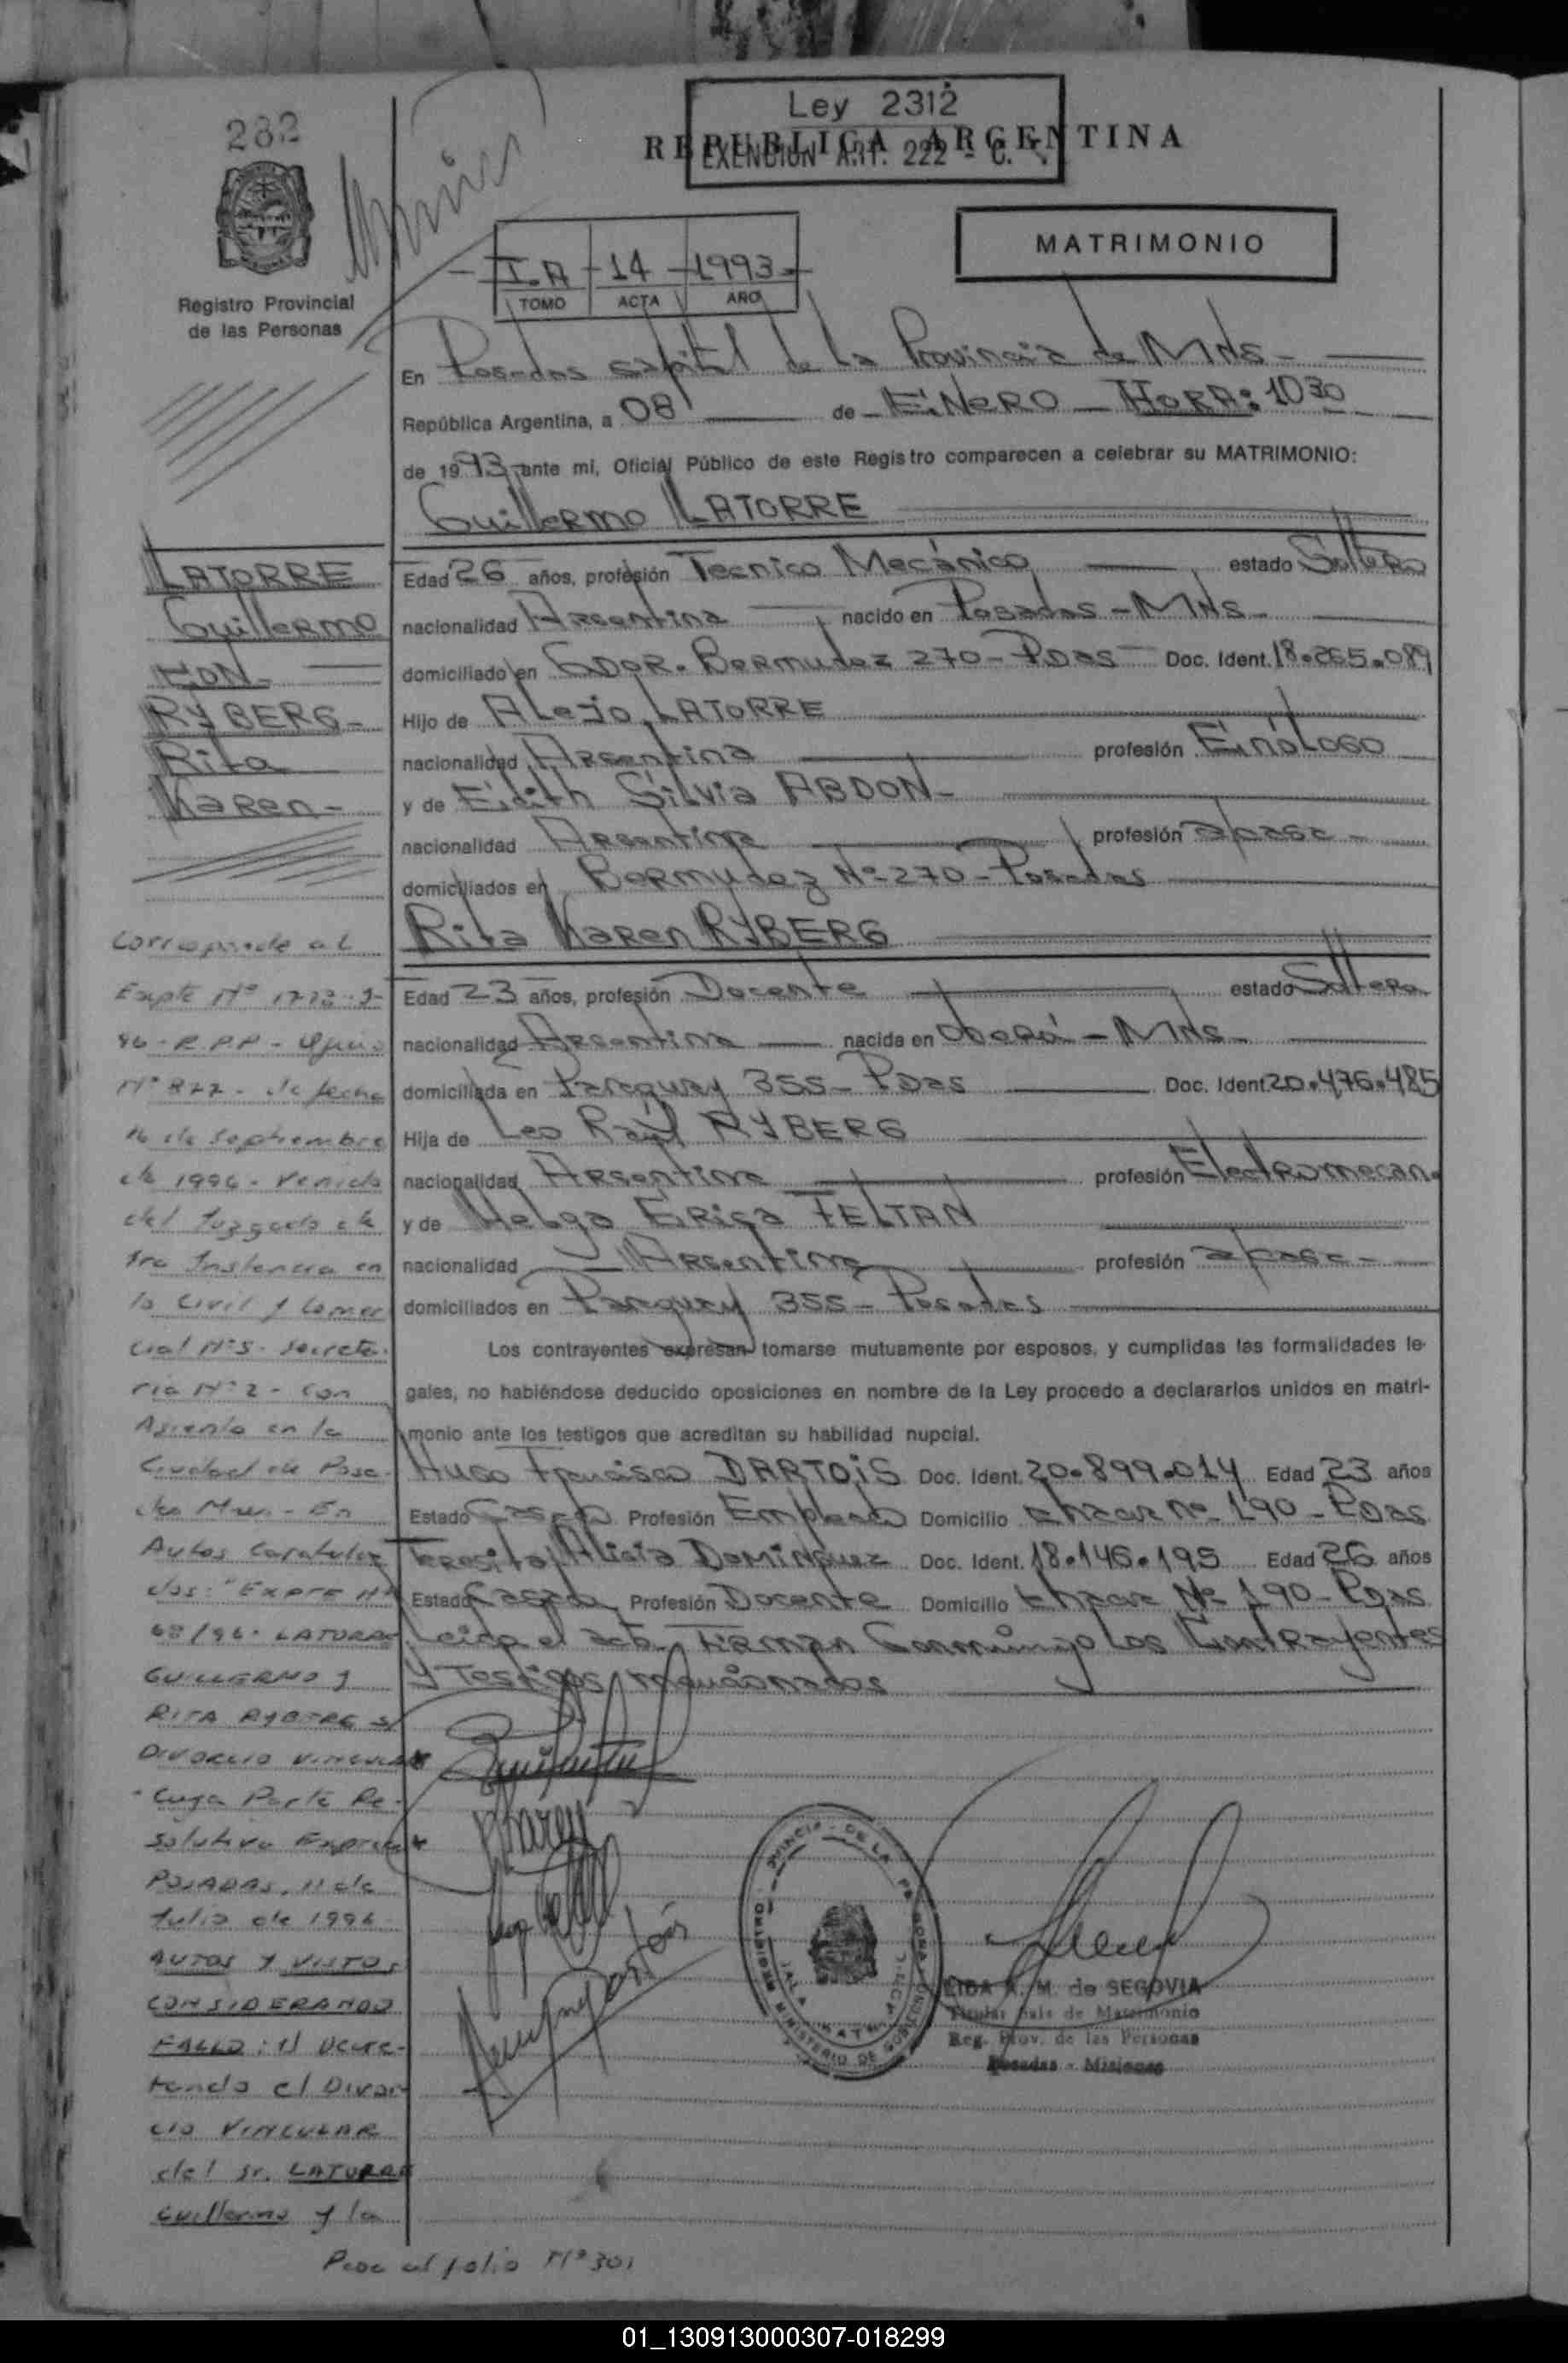 282
Ley 2312
REPUBLICA ARGENTINA
EXENCION ART. 222 - C.
MATRIMONIO
I.A - 14 - 1993
TOMO ACTA AÑO
Registro Provincial
de las Personas
En Posadas capital de la Provincia de Mnes -
República Argentina, a 08 de ENERO - HORA: 1030
de 1993 ante mi, Oficial Público de este Registro comparecen a celebrar su MATRIMONIO:
Guillermo LATORRE
Edad 26 años, profesión Tecnico Mecánico estado Soltero
nacionalidad Argentina nacido en Posadas - Mnes -
domiciliado en GDOR. Bermudez 270 - Pdas Doc. Ident. 18.265.089
Hijo de Alejo LATORRE
nacionalidad Argentina profesión Enólogo
y de Edith Silvia ABDON -
nacionalidad Argentina profesión
domiciliados en Bermudez Nº 270 - Posadas
Rita Karen RYBERG
Edad 23 años, profesión Docente estado Soltera
nacionalidad Argentina nacida en Oberá - Mnes
domiciliada en Paraguay 355 - Pdas Doc. Ident. 20.476.485
Hija de Leo Raúl RYBERG
nacionalidad Argentina profesión Electromecan.
y de Helga Erica FELTAN
nacionalidad Argentina profesión
domiciliados en Paraguay 355 - Posadas
Los contrayentes expresan tomarse mutuamente por esposos, y cumplidas las formalidades le-
gales, no habiéndose deducido oposiciones en nombre de la Ley procedo a declararlos unidos en matri-
monio ante los testigos que acreditan su habilidad nupcial.
Hugo Francisco DARTOIS Doc. Ident. 20.899.014 Edad 23 años
Estado Casado Profesión Empleado Domicilio Nº 190 - Pdas
Teresita Alicia Dominguez Doc. Ident. 18.146.195 Edad 26 años
Estado Casada Profesión Docente Domicilio Nº 190 - Pdas
Leida el acta, Firman Conmigo Los Contrayentes
y Testigos mencionados
LATORRE
Guillermo
CON
RYBERG -
Rita
Karen -
Corresponde al
Expte Nº
96 - R.P.P - Oficio
Nº 877 - de fecha
16 de septiembre
de 1996 - Venido
del Juzgado de
1ra Instancia en
lo Civil y Comer
cial Nº 5 - Secreta-
ria Nº 2 - Con
Asiento en la
Ciudad de Posa-
das Mnes. - En
Autos Caratula
dos: "EXPTE Nº
68/96 - LATORRE
GUILLERMO y
RITA RYBERG s/
DIVORCIO VINCULAR
- Cuya Parte Re-
solutiva Expresa
POSADAS, 11 de
Julio de 1996
AUTOS Y VISTOS
CONSIDERANDO
FALLO: 1) Decre-
tando el Divor-
cio VINCULAR
del Sr. LATORRE
Guillermo y la
Pasa al folio Nº 301
LIDA A. M. de SEGOVIA
Titular Sala de Matrimonio
Reg. Prov. de las Personas
Posadas - Misiones
01_130913000307-018299